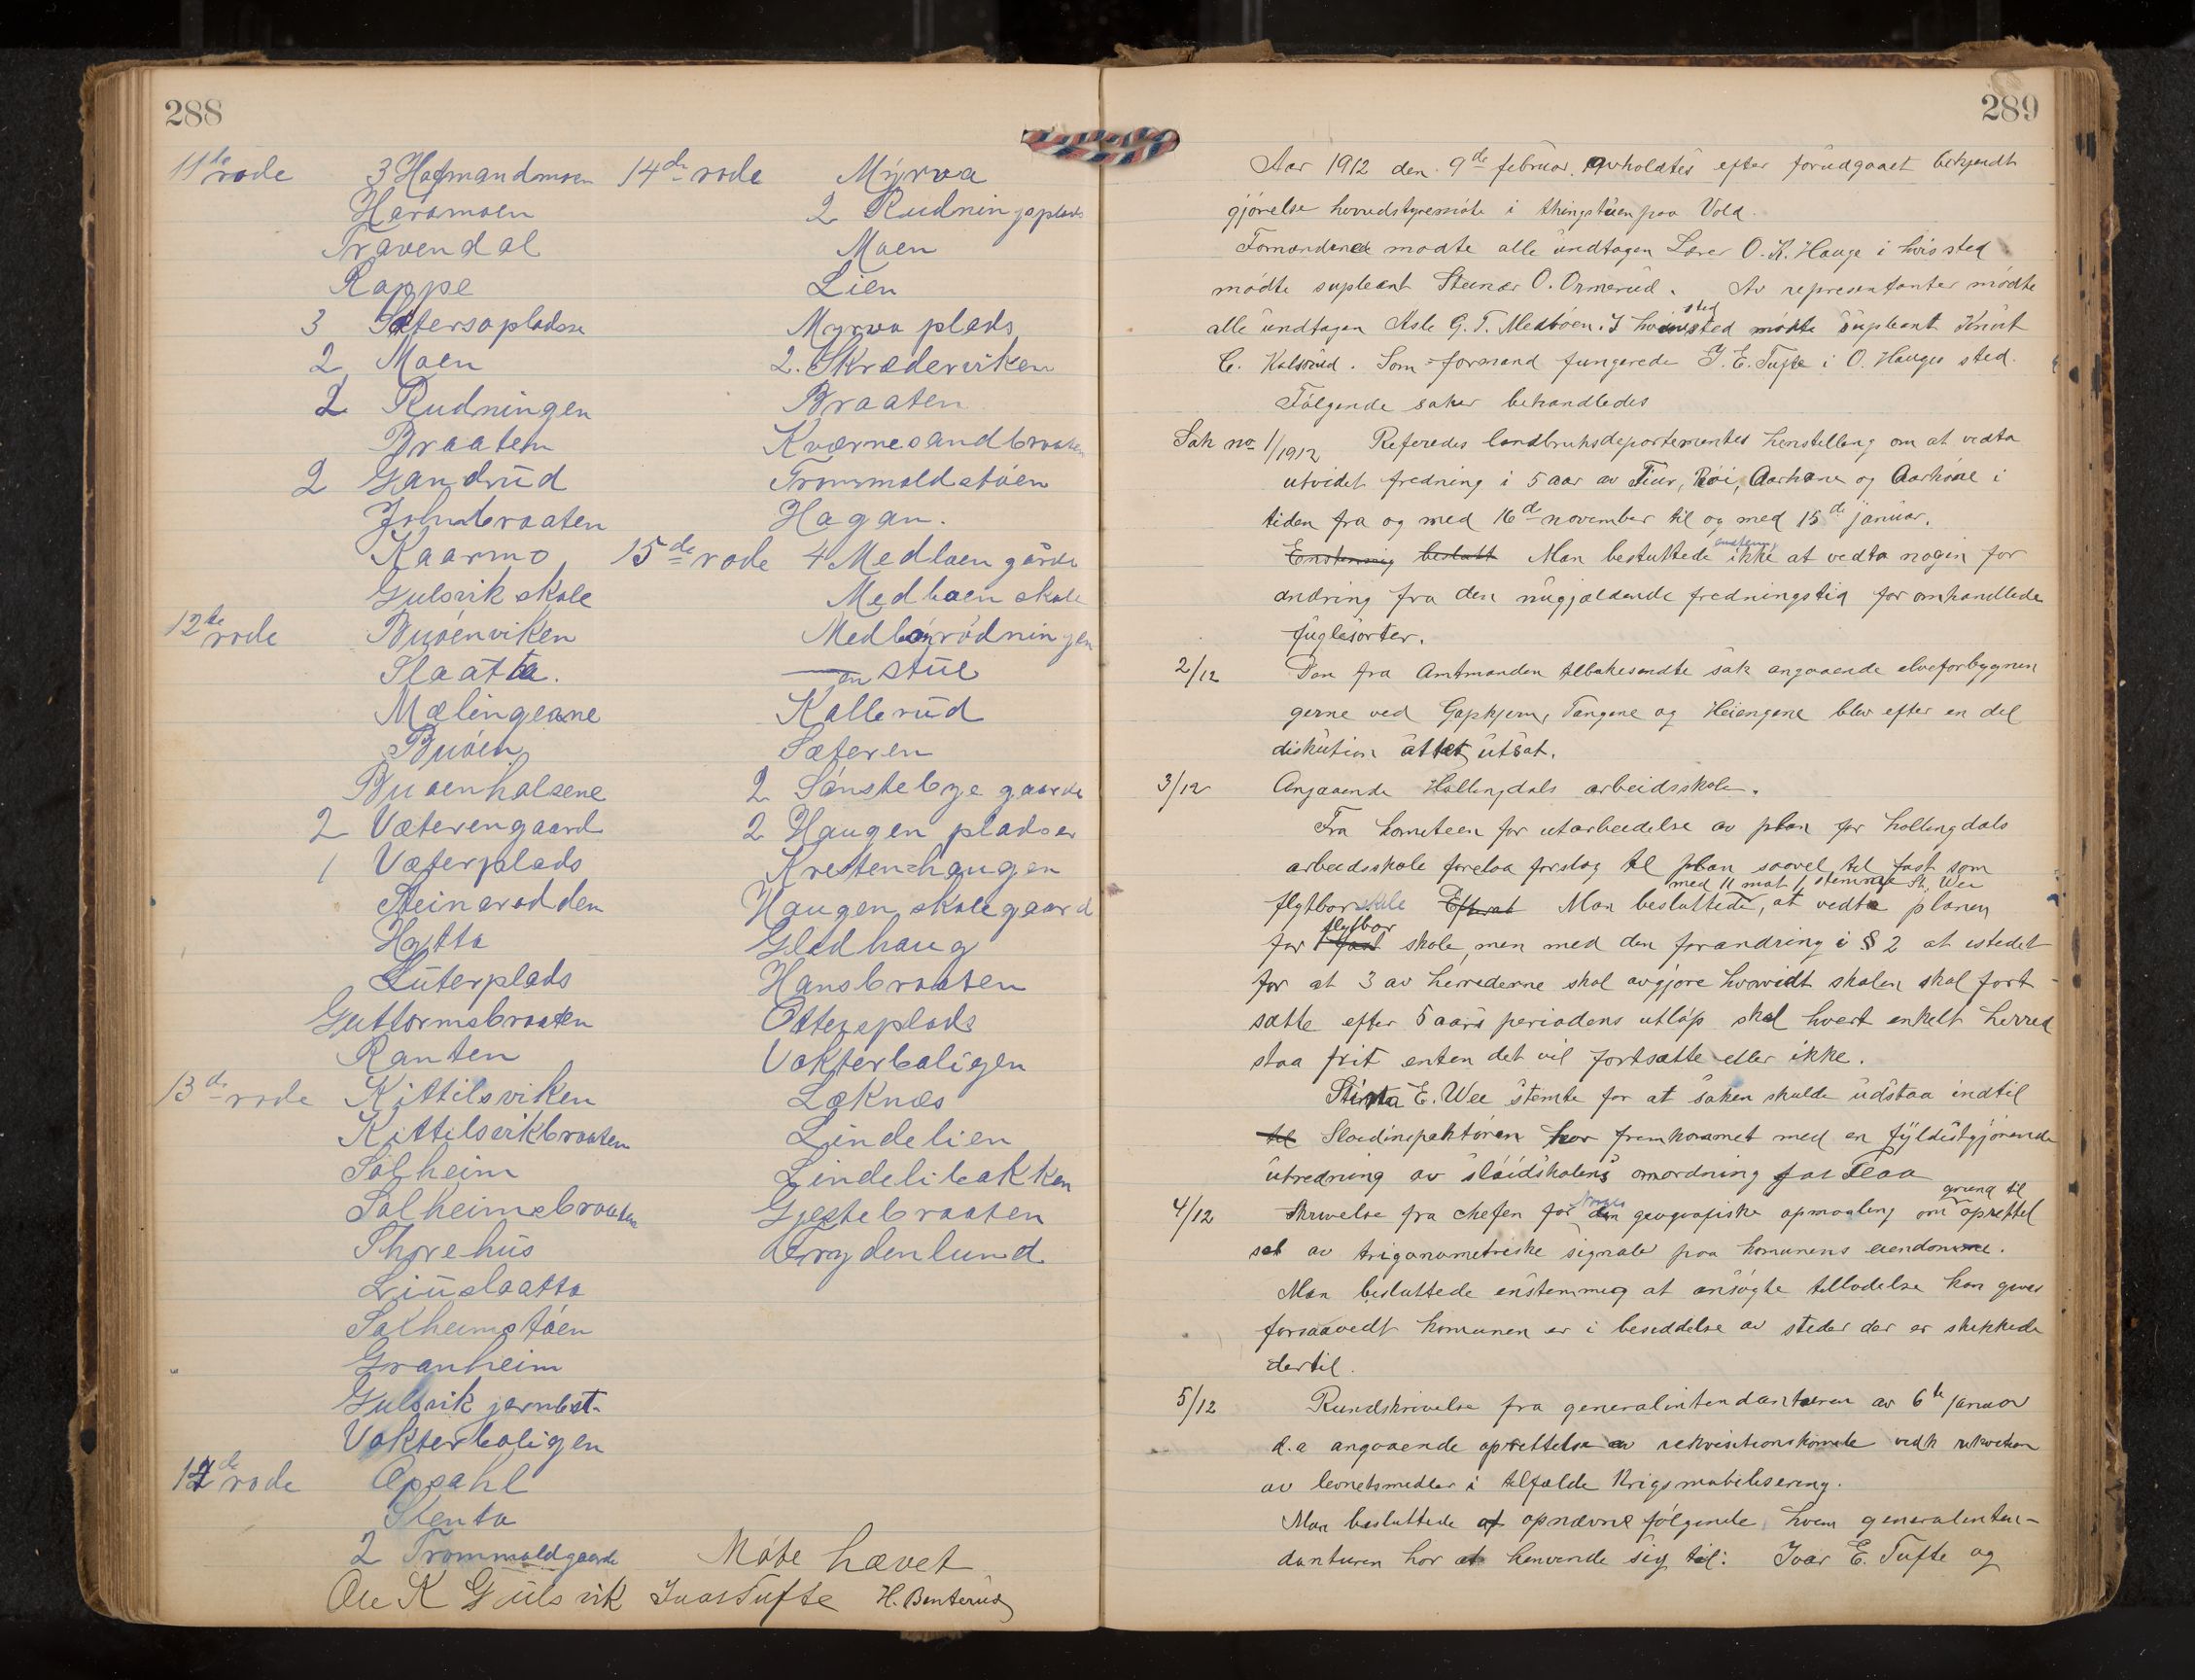 288
11te rode
3 Hafmandmoen
Heramoen
Travendal
Rappe
3 Sætersapladse
2 Moen
2 Rudningen
Braaten
2 Gandrud
Johnbraaten
Kaarmo
Gulsvik skole
12te rode
Buøenviken
Slaatta.
Mælingeane
Buøen
Buøenhalsene
2 Væterengaard
1 Væterplads
Steinerodden
Hytta
Luterplads
Guttormsbraaten
Ranten
13de rode
Kittilsviken
Kittilsvikbraaten
Solheim
Solheimsbraaten
Thorehus
Liuslaatta
Solheimstøen
Granheim
Gulsvik jernbst.
Vokterboligen
14de rode
Opsahl
Slenta
2 Trommaldgaarde
14de rode
Myrva
2 Rudningsplads
Moen
Lien
Myrva plads
2. Skrædderviken
Braaten
Kværnesandbraaten
Trommaldstøen
Hagan.
15de rode
4 Medbøen gårde
Medbøen skole
Medbøyrødningen
— en stul
Kallerud
Sæteren
2 Sønstebye gaarde
2 Haugen pladser
Krestenhaugen
Haugen skolegaard
Gladhaug
Hansbraaten
Ottersplads
Vokterboligen
Læknæs
Lindelien
Lindelibakken
Gjestebraaten
Frydenlund
Møte hævet
Ole K Gulsvik Ivar Tufte H. Benterud
289
Aar 1912 den 9de februar avholdtes efter forudgaaet bekjendt
gjørelse herredstyremøte i thingstuen paa Vold.
Formændene mødte alle undtagen Lærer O. K. Hauge i hvis sted
mødte supleant Steinar O. Ormerud. Av representanter mødte
alle undtagen Asle G. T. Medbøen. I hvis sted mødte supleant Knut
C. Kolsrud. Som formand fungerede I. E. Tufte i O. Hauges sted.
Følgende saker behandledes
Sak no 1/1912 Referedes landbruksdepartementes henstilling om at vedta
utvidet fredning i 5 aar av Tiur, Røi, Aarhane og Aarhøne i
tiden fra og med 16de november til og med 15de januar.
Enstemmig beslutt Man besluttede enstemig ikke at vedta nogen for
andring fra den nugjældende fredningstid for omhandlede
fuglesorter.
2/12 Den fra Amtmanden tilbakesendte sak angaaende elveforbygnin
gerne ved Gapkjern, Tangene og Heiengene blev efter en del
diskution attat utsat.
3/12 Angaaende Hallingdals arbeidsskole.
Fra kometeen for utarbeidelse av plan for hallingdals
arbeidsskole forelaa forslag til plan saavel til fast som
flytbar skole Efterat Man besluttede med 11 mot 1 stemme St. Wee, at vedta planen
for fast flytbar skole, men med den forandring i § 2 at istedet
for at 3 av herrederne skal avgjøre hvorvidt skolen skal fort
sætte efter 5 aars periodens utløp skal hvert enkelt herred
staa frit enten det vil fortsætte eller ikke.
E. Wee stemte for at saken skulde udstaa indtil
til Sløidinspektøren har fremkommet med en fyldestgjørende
utredning av sløidskolens omordning for Flaa
4/12 Skrivelse fra chefen for Norges den geografiske opmaaling om grund til oprettel
set av trigonometriske signaler paa komunens eiendomme.
Man besluttede enstemmig at ansøgte tilladelse kan gives
forsaavidt komunen er i besiddelse av steder der er skikkede
dertil.
5/12 Rundskrivelse fra generalintendanturen av 6te januar
d.a angaaende oprettelse av rekvisitionskomite vedk
av levnetsmidler i tilfælde krigsmobilisering.
Man besluttede at opnævne følgende, hvem generalinten-
danturen har at henvende sig til: Ivar E. Tufte og